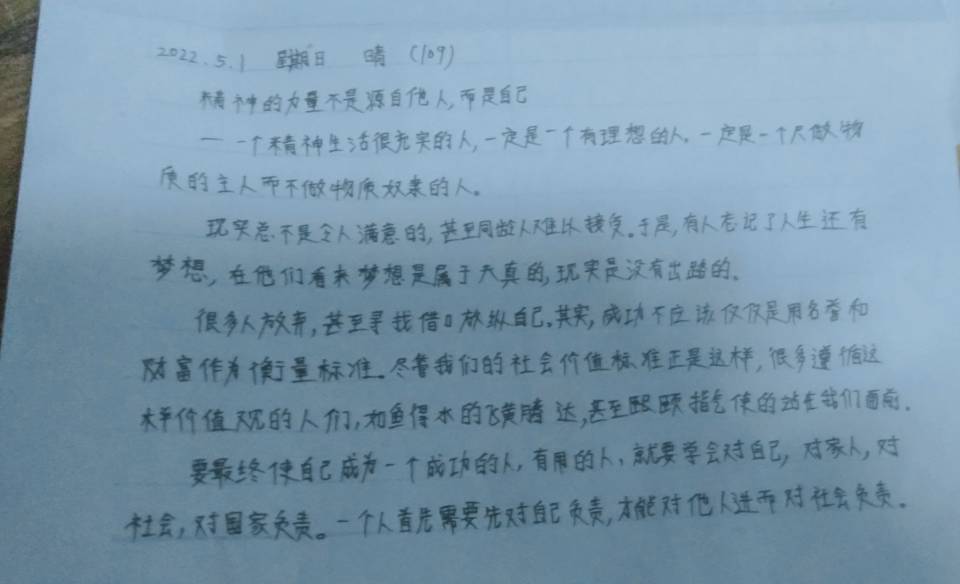 2022.5.1 星期日 晴 (109)
精神的力量不是源自他人,而是自己
一 一个精神生活很充实的人,一定是一个有理想的人.一定是一个只做物
质的主人而不做物质奴隶的人。
现实总不是令人满意的,甚至同龄人难以接受。于是,有人忘记了人生还有
梦想,在他们看来梦想是属于天真的,现实是没有出路的.
很多人放弃,甚至寻找借口放纵自己.其实,成功不应该仅仅是用名誉和
财富作为衡量标准。尽管我们的社会价值标准正是这样,很多遵循这
样价值观的人们,如鱼得水的飞黄腾达,甚至颐指气使的站在我们面前.
要最终使自己成为一个成功的人,有用的人,就要学会对自己,对家人,对
社会,对国家负责。一个人首先需要先对自己负责,才能对他人进而对社会负责.